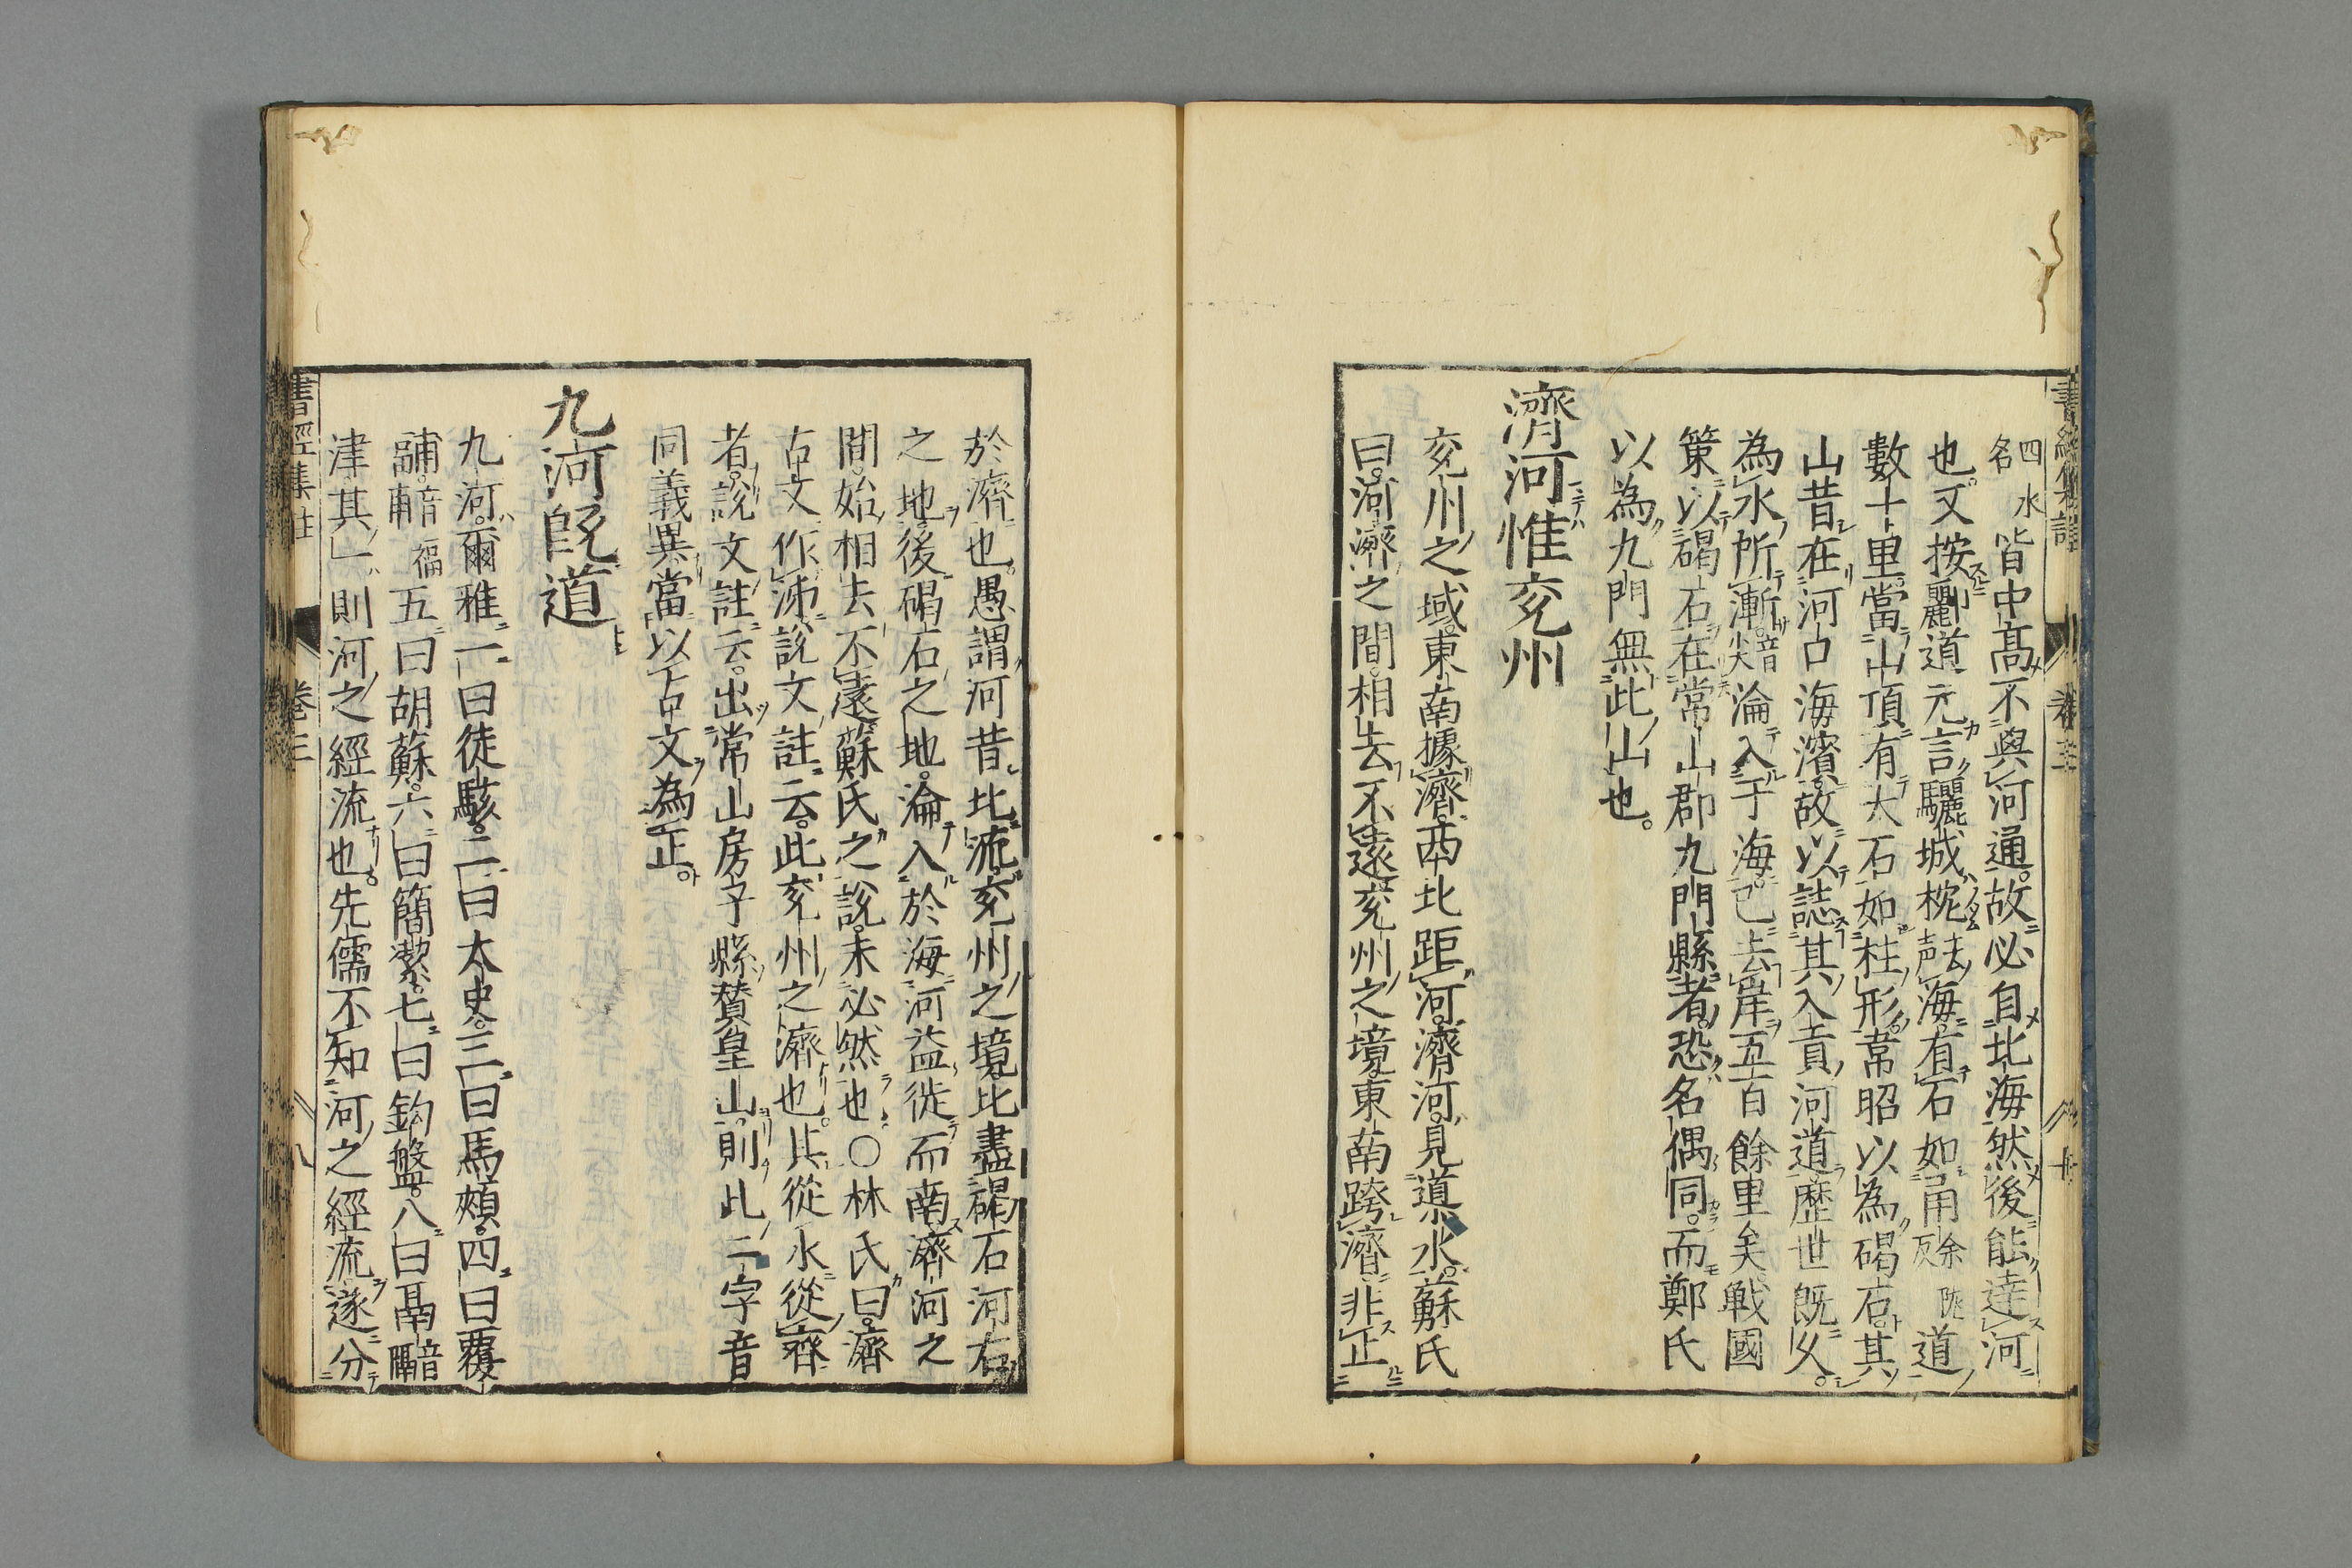 書經集註 卷三
四水名皆中髙不與河通故必自北海然後能達河
也又按酈道元言驪城枕去声海有石如甬余隴反道
數十里當山頂有大石如柱形韋昭以為碣石其
山昔在河口海濱故以誌其入貢河道歴世既乆
為水所漸音尖淪入于海已去岸五百餘里矣戰國
策以碣石在常山郡九門縣者恐名偶同而鄭氏
以為九門無此山也
濟河惟兗州
兗州之域東南據濟西北距河濟河見導水蘇氏
曰河濟之間相去不遠兗州之境東南跨濟非止
於濟也愚謂河昔北流兗州之境北盡碣石河右
之地後碣石之地淪入於海河益徙而南濟河之
間始相去不遠蘇氏之説未必然也〇林氏曰濟
古文作泲説文註云此兗州之濟也其從水從齊
者説文註云出常山房子縣賛皇山則此二字音
同義異當以古文為正
九河既道
九河爾雅一曰徒駭二曰太史三曰馬頰四曰覆
鬴音福五曰胡蘇六曰簡潔七曰鈎盤八曰鬲音隔
津其一則河之經流也先儒不知河之經流遂分
書經集註 卷三 八